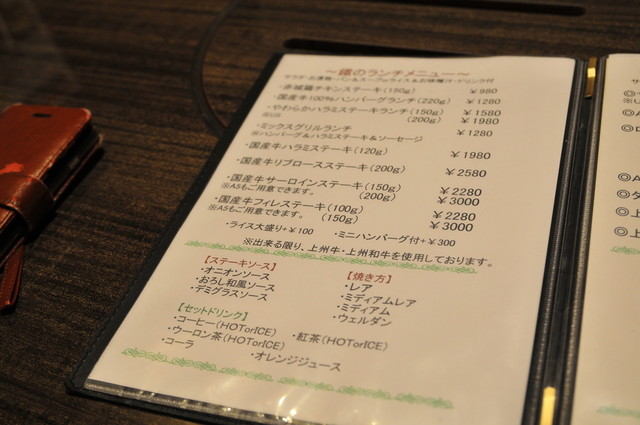 ～鐵のランチメニュー～
サラダ・お漬物・パン&スープorライス&お味噌汁・ドリンク付
・赤城鶏チキンステーキ(150g) ￥980
・国産牛100%ハンバーグランチ(220g) ￥1280
・やわらかハラミステーキランチ(150g) ￥1580
(200g) ￥1980
・ミックスグリルランチ ￥1280
※ハンバーグ&ハラミステーキ&ソーセージ
・国産牛ハラミステーキ(120g) ￥1980
・国産牛リブロースステーキ(200g) ￥2580
・国産牛サーロインステーキ(150g) ￥2280
※A5もご用意できます。 (200g) ￥3000
・国産牛フィレステーキ(100g) ￥2280
※A5もご用意できます。 (150g) ￥3000
・ライス大盛り+￥100 ・ミニハンバーグ付+￥300
※出来る限り、上州牛・上州和牛を使用しております。
【ステーキソース】
・オニオンソース
・おろし和風ソース
・デミグラスソース
【焼き方】
・レア
・ミディアムレア
・ミディアム
・ウェルダン
【セットドリンク】
・コーヒー(HOTorICE) ・紅茶(HOTorICE)
・ウーロン茶(HOTorICE)
・コーラ ・オレンジジュース